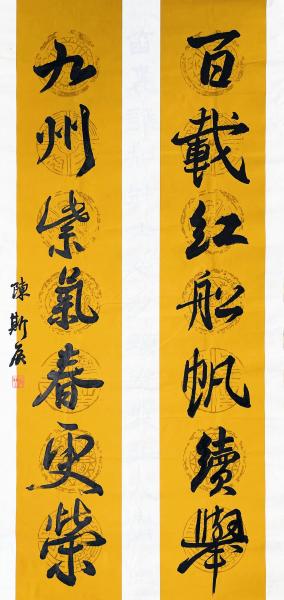 百載红船帆續舉
九州紫氣春更榮
陳斯展